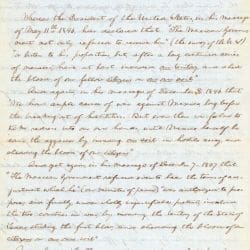 Whereas the President of the United States, in his message
of May 11th 1846, has declared that "The Mexican Govern-
ment not only refused to receive him" (the envoy of the U.S.)
"or listen to his propositions, but after a long continued series
of menaces have at last invaded our territory, and shed
the blood of our fellow citizens on our own soil"
And again, in his message of December 8, 1846 that
"We had ample cause of war against Mexico, long before
the breaking out of hostilities. But even then we forbore to
take redress into our own hands, until Mexico herself be-
came the aggressor by invading our soil in hostile array, and
shedding the blood of our citizens"
And yet again, in his message of December 7, 1847 that
"The Mexican Government refused even to hear the terms of ad-
justment which he" (our minister of peace) "was authorized to pro-
pose; and finally, under wholly unjustifiable pretexts, involved
the two countries in war, by invading the territory of the State of
Texas, striking the first blow, and shedding the blood of our
citizens on our own soil"